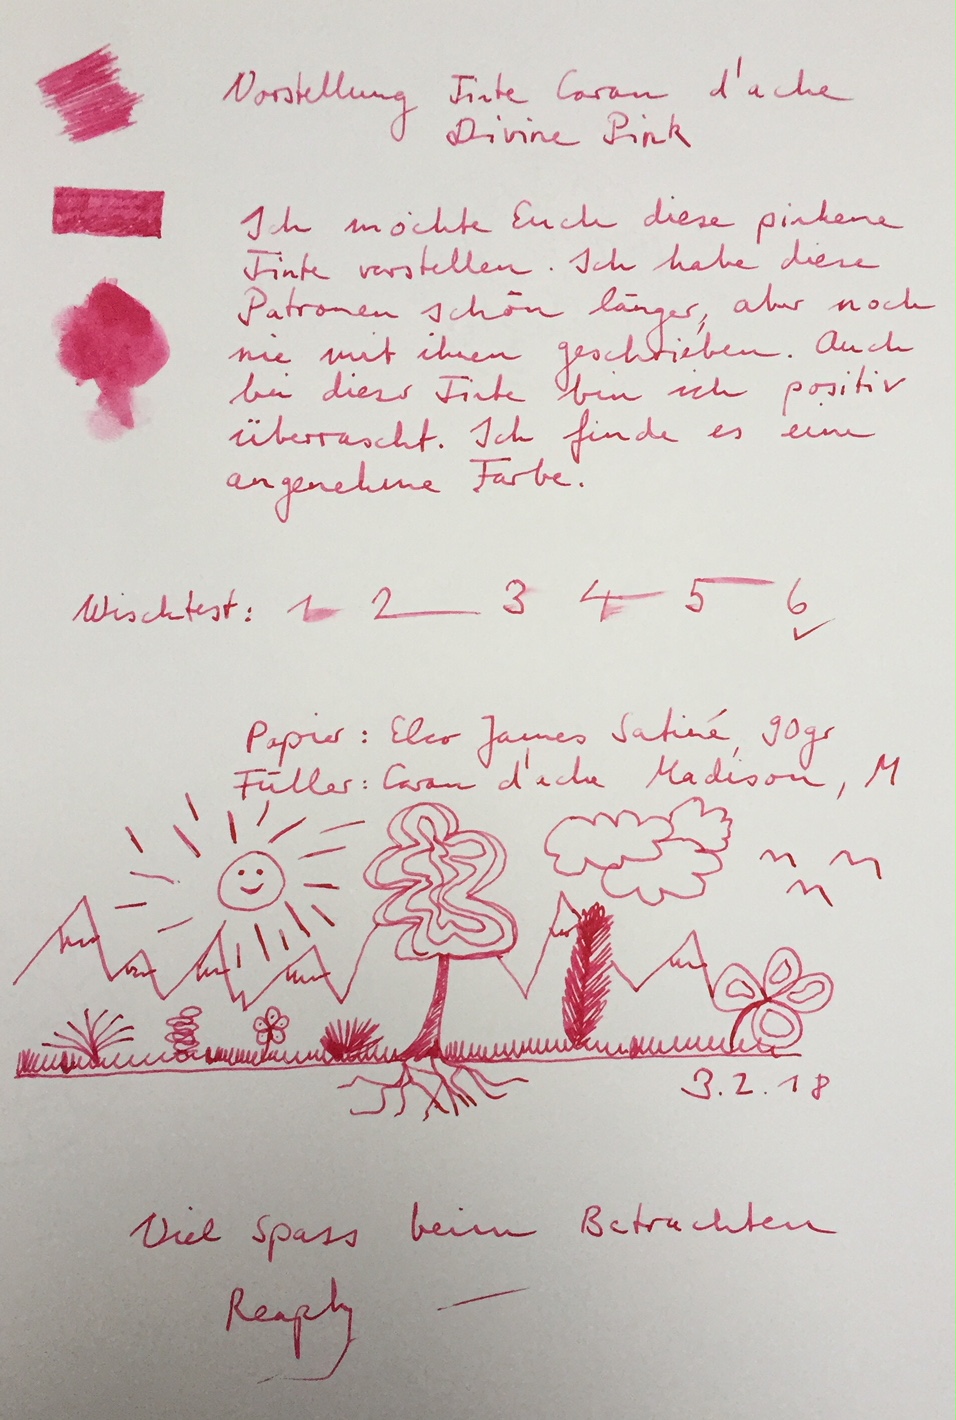 Vorstellung Tinte Caran d'ache
Divine Pink
Ich möchte Euch diese pinkene
Tinte vorstellen. Ich habe diese
Patronen schon länger, aber noch
nie mit ihnen geschrieben. Auch
bei dieser Tinte bin ich positiv
überrascht. Ich finde es eine
angenehme Farbe.
Wischtest: 1 2 3 4 5 6 ✓
Papier: Elco James Satiné, 90gr
Füller: Caran d'ache Madison, M
3.2.18
Viel Spass beim Betrachten